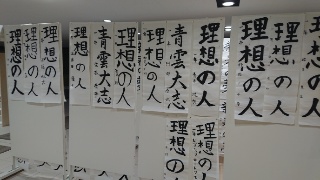 理想の人
理想の人
理想の人
理想の人
青雲大志
理想の人
理想の人
青雲大志
理想の人
理想の人
理想の人
理想の人
理想の人
理想の人